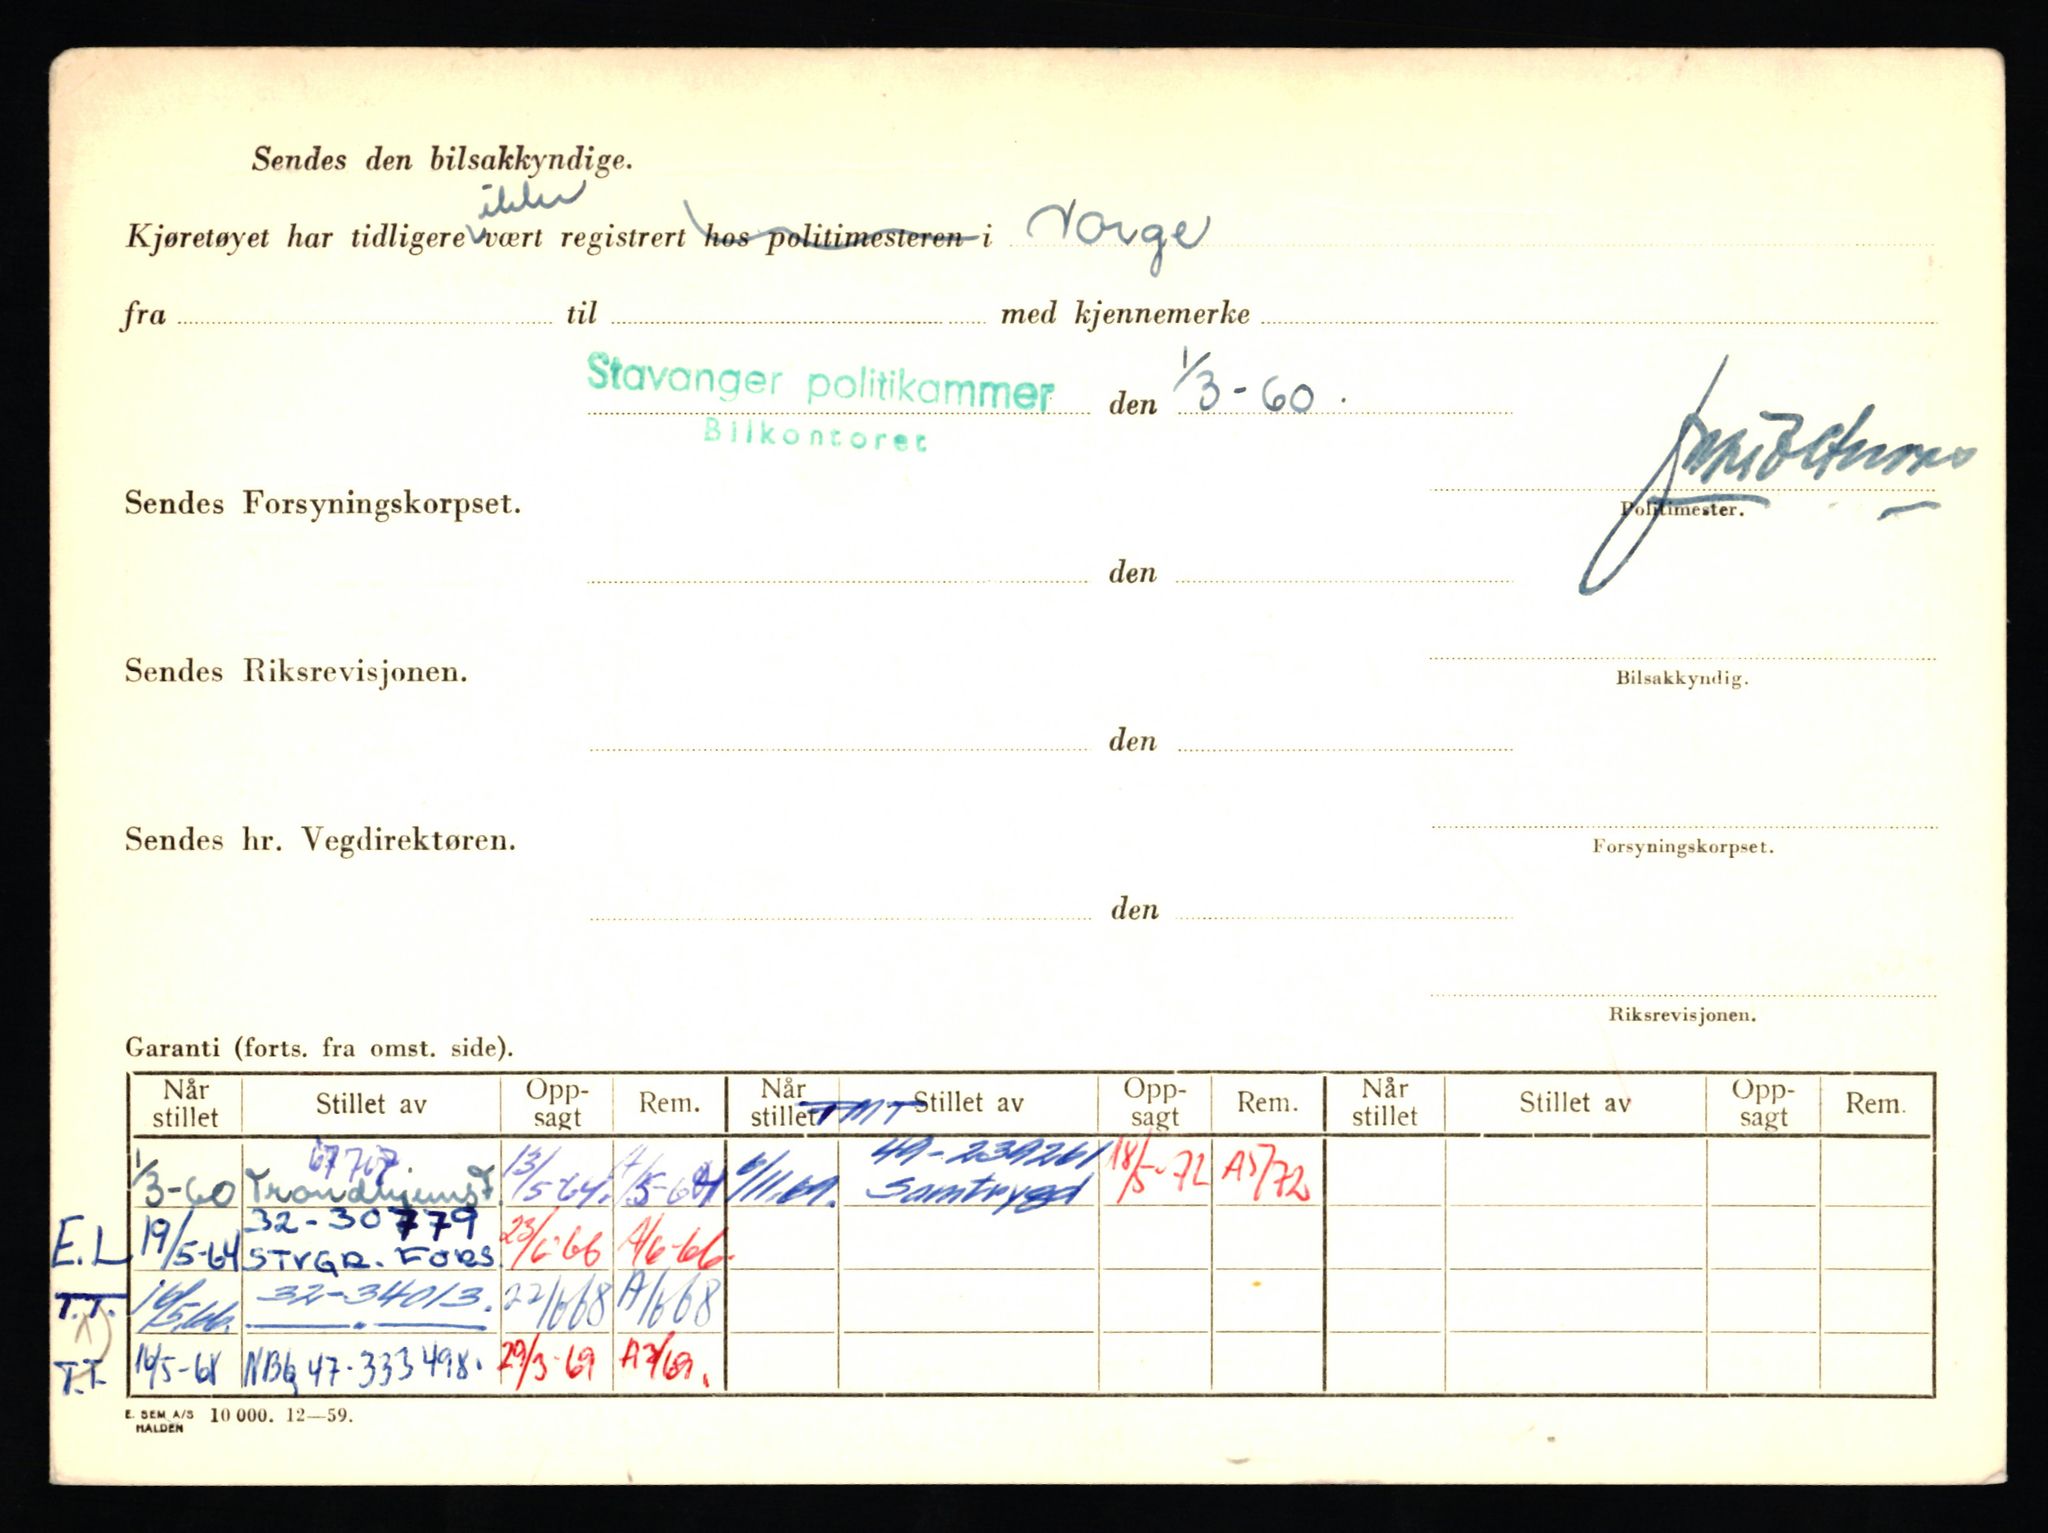 Sendes den bilsakkyndige.
ikke
Kjøretøyet har tidligere vært registrert hos politimesteren i Norge
fra til med kjennemerke
Stavanger politikammer den 1/3-60.
Bilkontoret
Politimester.
Sendes Forsyningskorpset.
den
Bilsakkyndig.
Sendes Riksrevisjonen.
den
Forsyningskorpset.
Sendes hr. Vegdirektøren.
den
Riksrevisjonen.
Garanti (forts. fra omst. side).
Når stillet Stillet av Opp-sagt Rem. Når stillet Stillet av Opp-sagt Rem. Når stillet Stillet av Opp-sagt Rem.
TMT
67707. 49-239261
1/3-60 Trondhjemsf. 13/5-64. A/5-64 6/11.69. Samtrygd 18/5-72 A5/72
32-30779
E.L 19/5-64 STVGR. FORS. 23/6-66 A/6-66
T.T. 16/5.66. 32-34013. 22/668 A/668
T.T. 16/5-68 NBg 47-333498. 29/3-69 A3/69.
E. SEM A/S 10 000. 12—59.
HALDEN